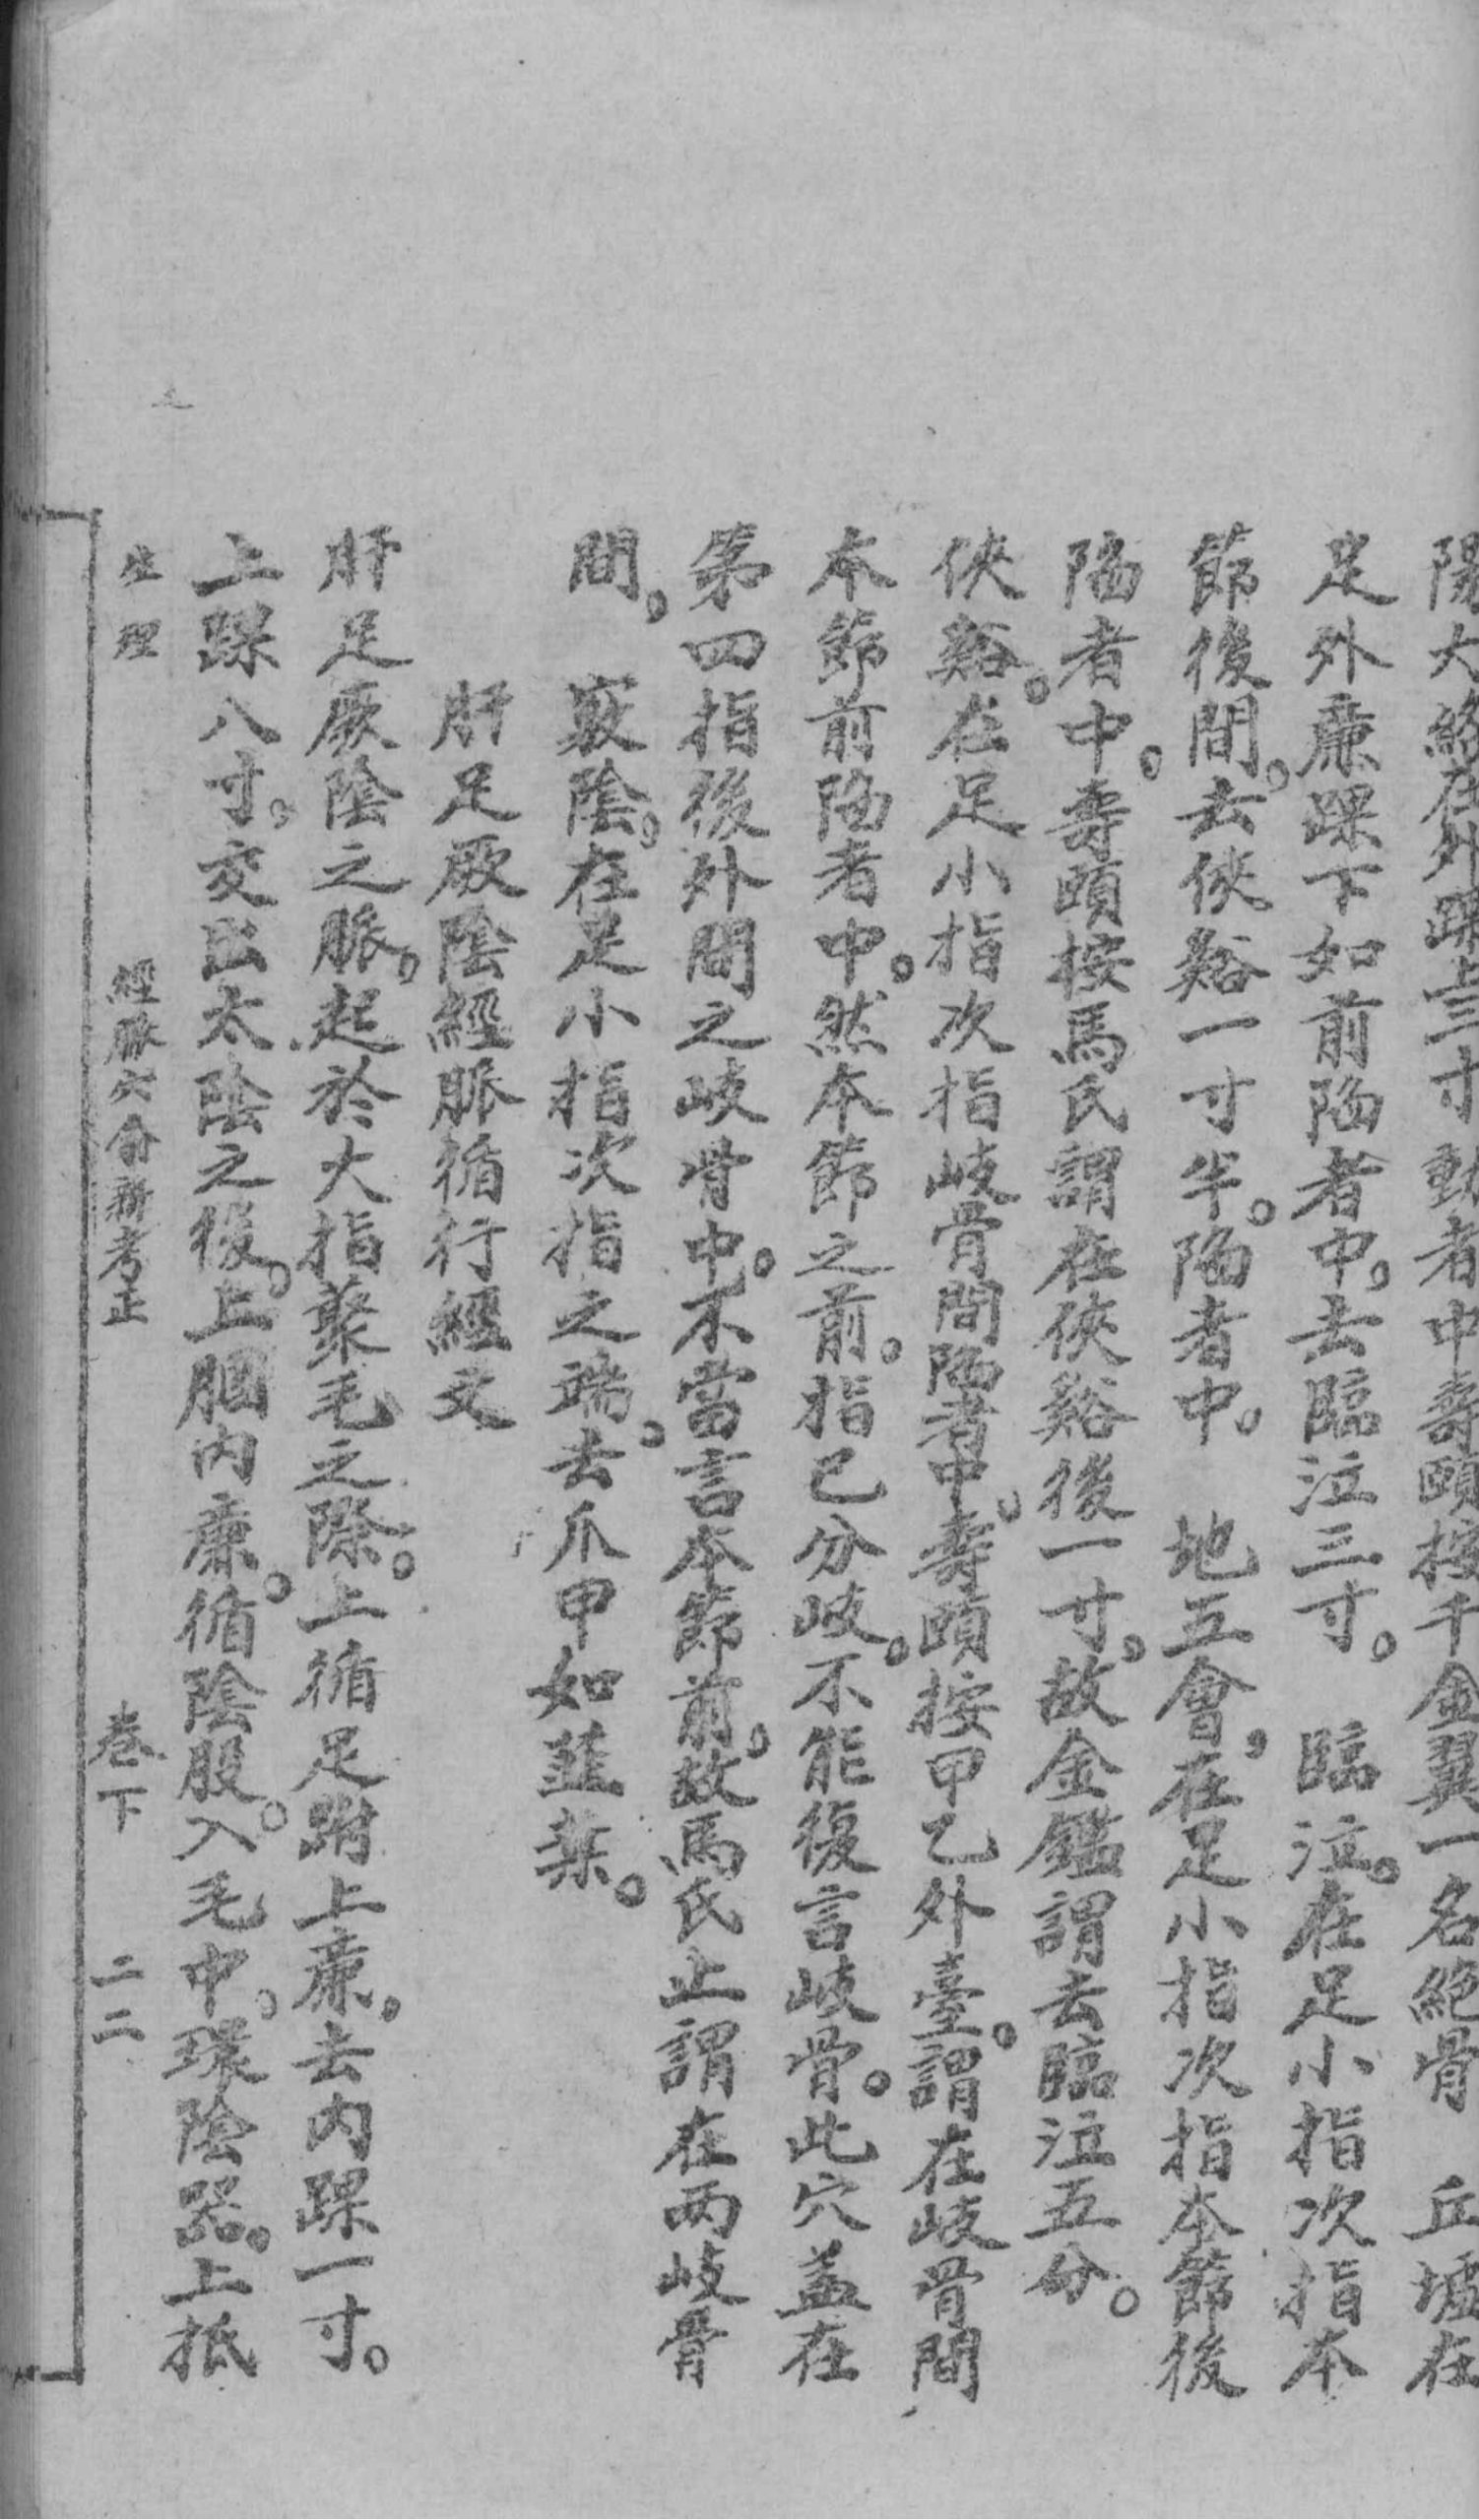 陽大絡在外踝上三寸動者中壽頤按千金翼一名絶骨　丘墟在
足外廉踝下如前陷者中。去臨泣三寸。　臨泣。在足小指次指本
節後間。去俠谿一寸半。陷者中。　地五會。在足小指次指本節後
陷者中。壽頤按馬氏謂在俠谿後一寸。故金鑑謂去臨泣五分。
俠谿。在足小指次指岐骨間陷者中。壽頤按甲乙外臺。謂在岐骨間
本節前陷者中。然本節之前。指已分岐。不能復言岐骨。此穴蓋在
第四指後外間之岐骨中。不當言本節前。故馬氏止謂在两岐骨
間。　竅陰。在足小指次指之端。去爪甲如韮葉。
肝足厥陰經脈循行經文
肝足厥陰之脈。起於大指藂毛之際。上循足跗上廉。去內踝一寸。
上踝八寸。交出太陰之後。上膕內廉。循陰股。入毛中。環陰器。上抵
生理　經脈穴俞新考正　卷下　二二